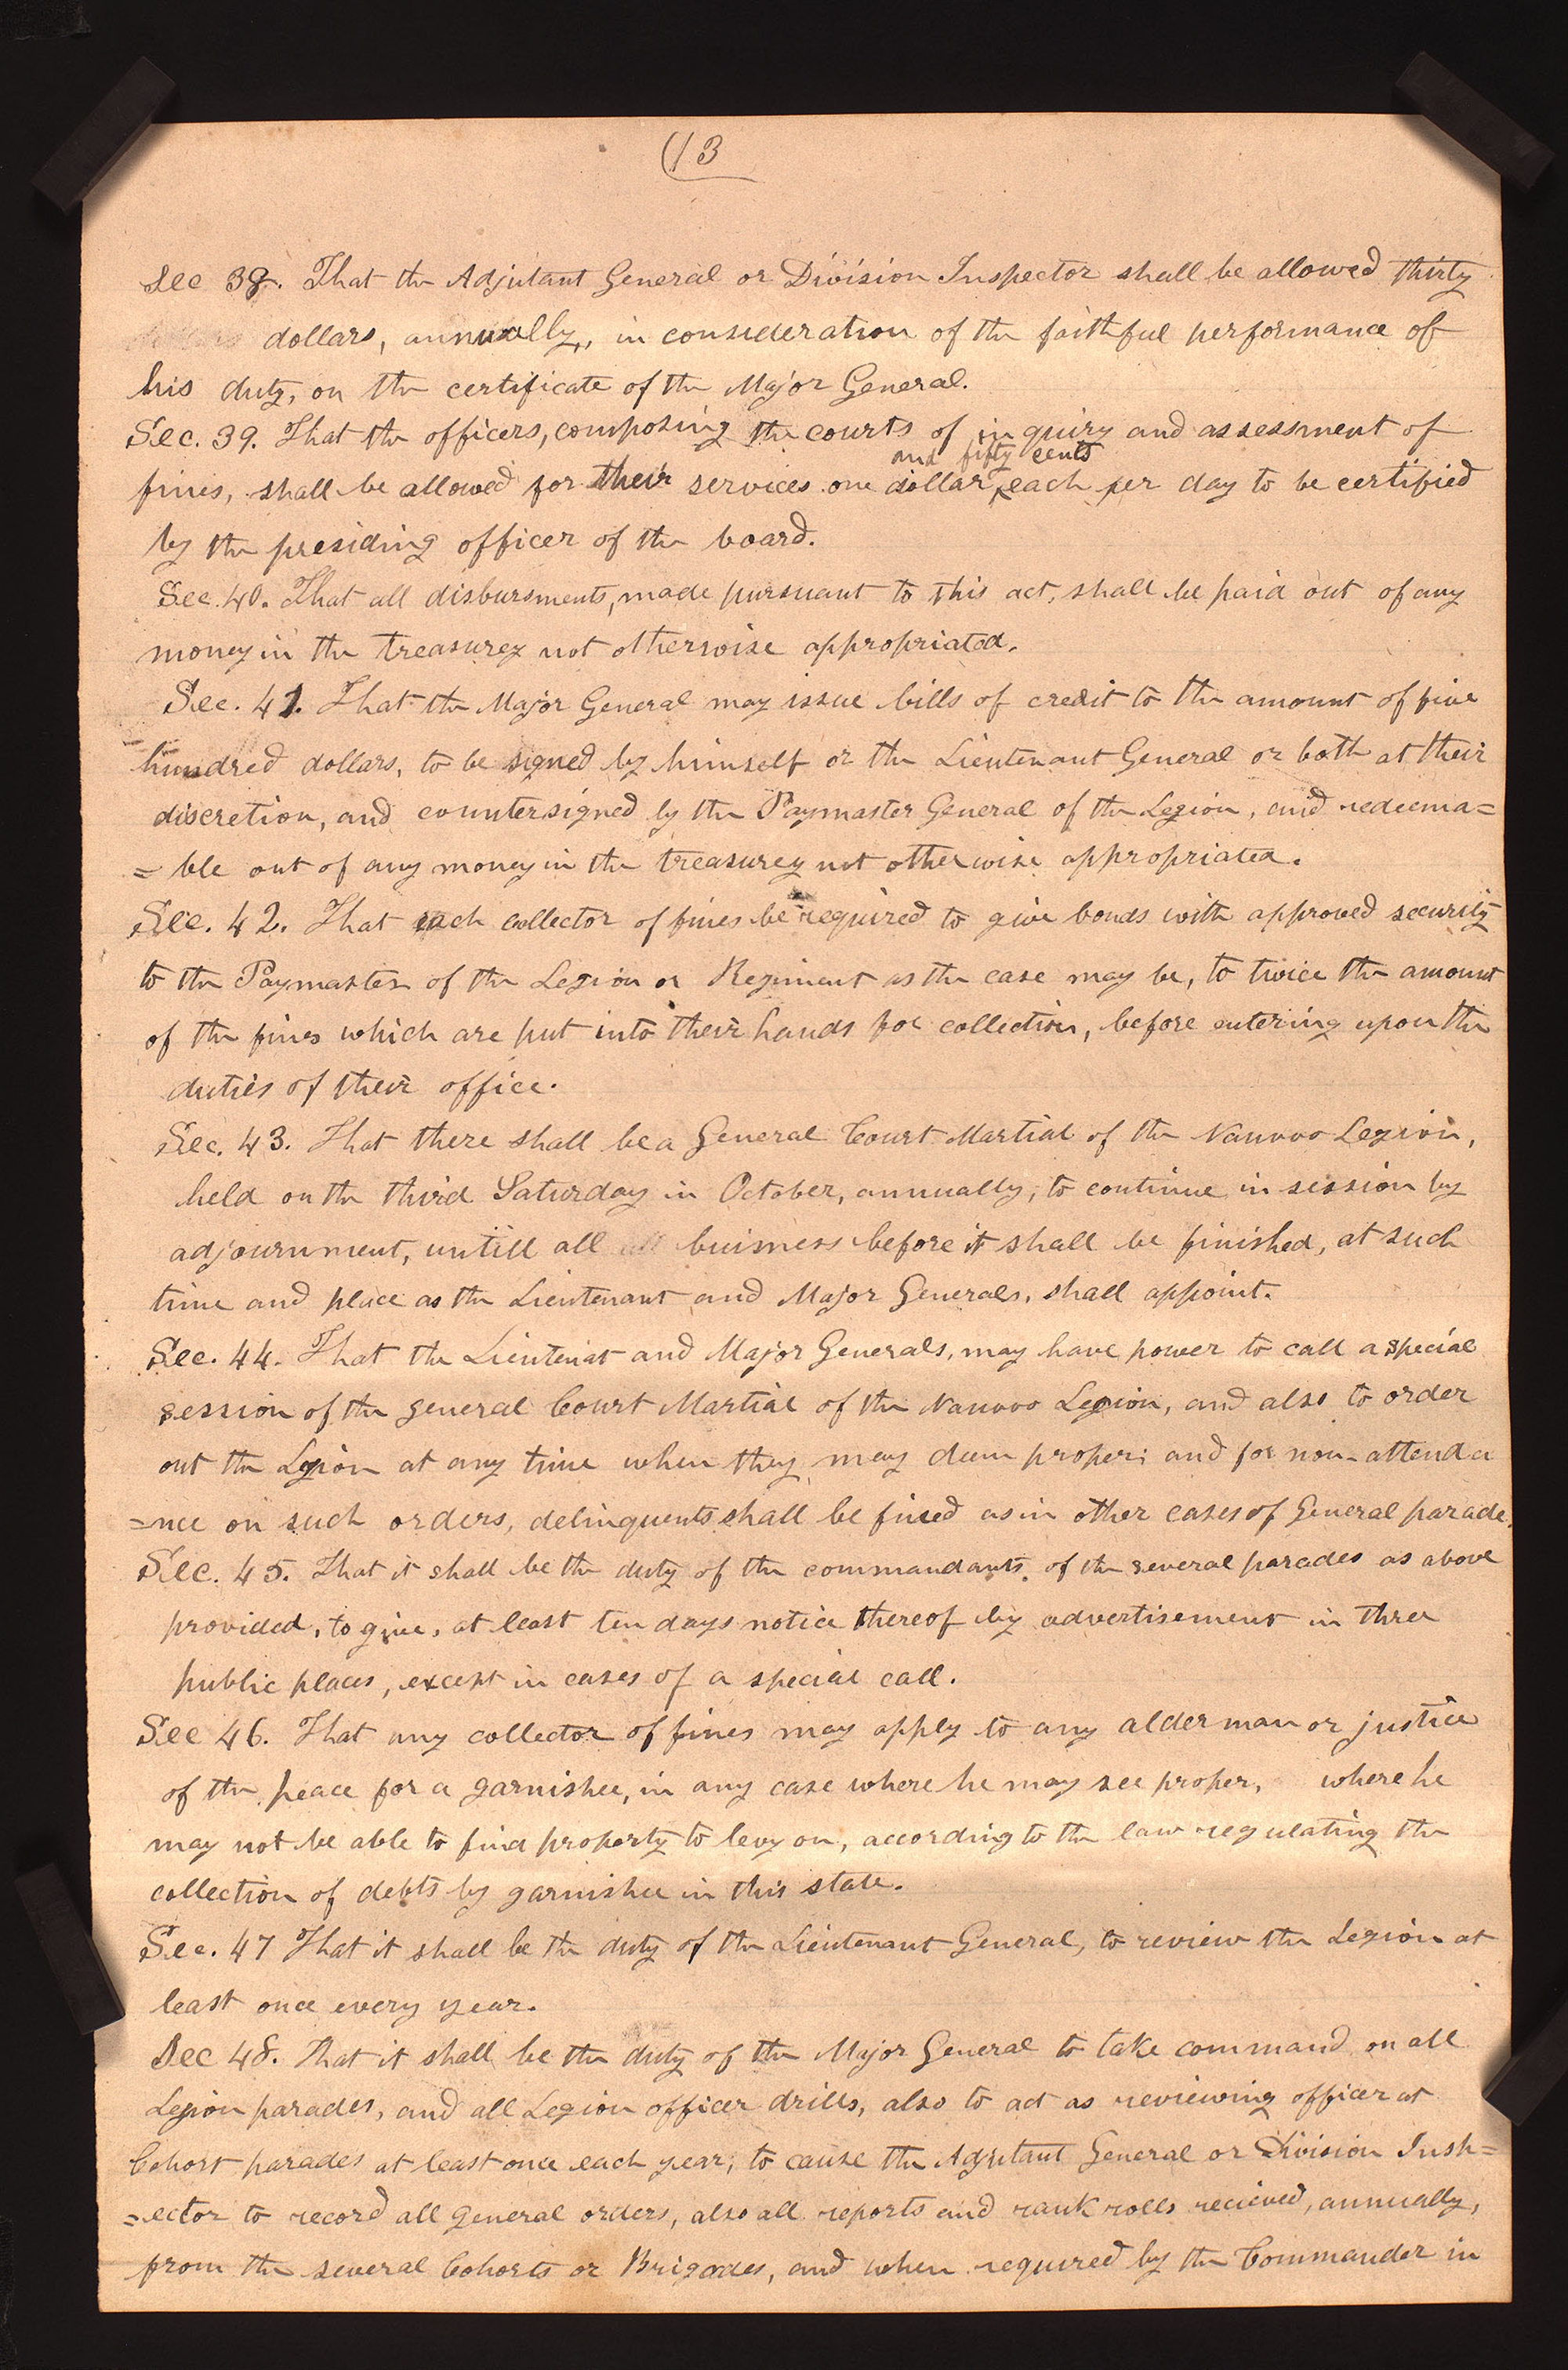 (13
Sec 38. That the Adjutant General or Division Inspector shall be allowed thirty
dollars, annually, in consideration of the faithful performance of
his duty, on the certificate of the Major General.
Sec. 39. That the officers, composing the courts of inquiry and assessment of
and fifty cents
fines, shall be allowed for their services one dollar ‸ each per day to be certified
by the presiding officer of the board.
Sec. 40. That all disbursments, made pursuant to this act, shall be paid out of any
money in the treasurey not otherwise appropriated.
Sec. 41. That the Major General may issue bills of credit to the amount of five
hundred dollars, to be signed by himself or the Lieutenant General or both at their
discretion, and countersigned by the Paymaster General of the Legion, and redeema=
=ble out of any money in the treasurey not otherwise appropriated.
Sec. 42. That each collector of fines be required to give bonds with approved security
to the Paymaster of the Legion or Regiment as the case may be, to twice the amount
of the fines which are put into their hands for collection, before entering upon the
duties of their office.
Sec. 43. That there shall be a General Court Martial of the Nauvoo Legion,
held on the third Saturday in October, annually, to continue in session by
adjournment, untill all all buisness before it shall be finished, at such
time and place as the Lieutenant and Major Generals, shall appoint.
Sec. 44. That the Lieutenat and Major Generals, may have power to call a special
session of the general Court Martial of the Nauvoo Legion, and also to order
out the Legion at any time when they may deem proper; and for non-attenda
=nce on such orders, delinquents shall be fined as in other cases of General parade.
Sec. 45. That it shall be the duty of the commandants of the several parades as above
provided, to give, at least ten days notice thereof by advertisement in three
public places, except in cases of a special call.
Sec 46. That any collector of fines may apply to any alderman or justice
of the peace for a garnishee, in any case where he may see proper, where he
may not be able to find property to levy on, according to the law regulating the
collection of debts by garnishee in this state.
Sec. 47 That it shall be the duty of the Lieutenant General, to review the Legion at
least once every year.
Sec 48. That it shall be the duty of the Major General to take command on all
Legion parades, and all Legion officer drills, also to act as reviewing officer at
Cohort parades at least once each year; to cause the Adjutant General or Division Insp=
=ector to record all general orders, also all reports and rank rolls recieved, annually,
from the several Cohorts or Brigades, and when required by the Commander in